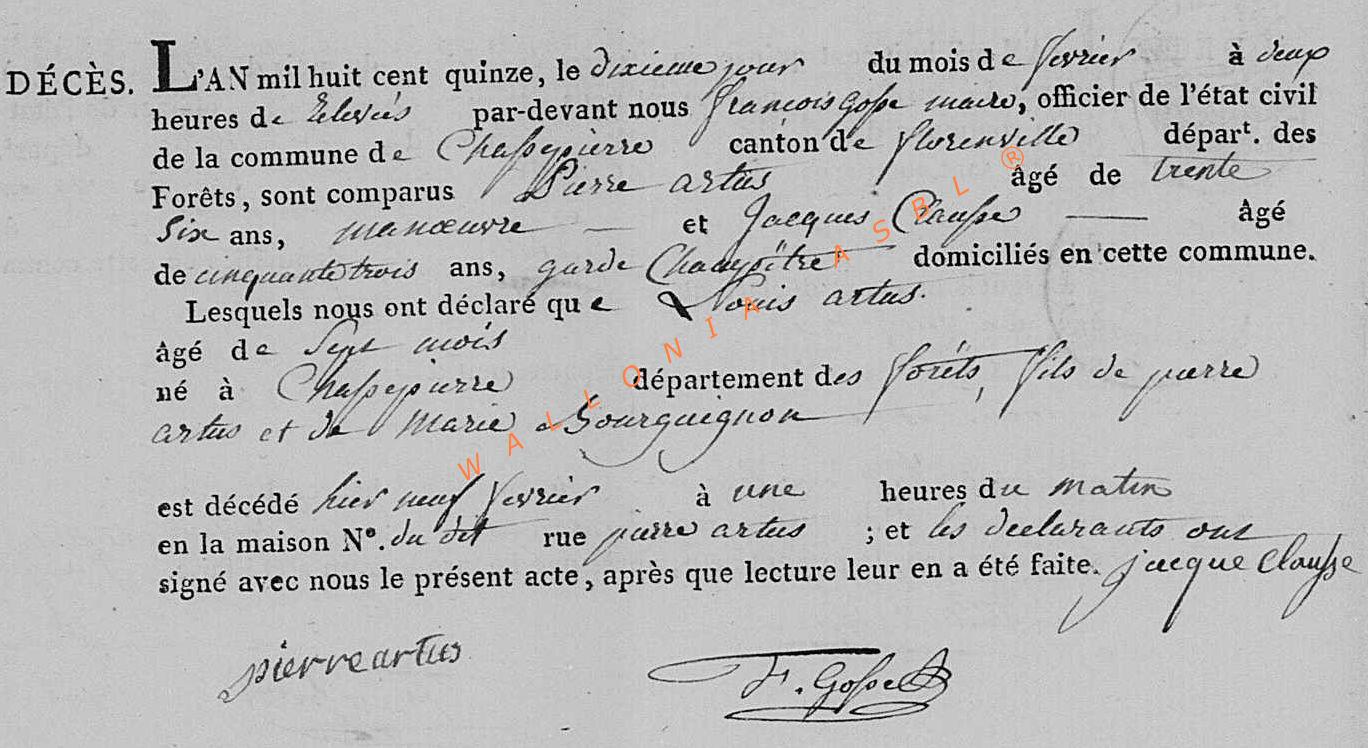 DÉCÈS. L'AN mil huit cent quinze, le dixieme jour du mois de fevrier à deux
heures de Relevés par-devant nous francois Gosse maire, officier de l'état civil
de la commune de Chassepierre canton de florenville dépar^t. des
Forêts, sont comparus Pierre artus âgé de trente
Six ans, manœuvre — et Jacques Clausse — âgé
de cinquante trois ans, garde Champêtre domiciliés en cette commune.
Lesquels nous ont déclaré que Louis artus.
âgé de Sept mois
né à Chassepierre département des forêts, fils de pierre
artus et de Marie Bourguignon
est décédé hier neuf fevrier à une heures du matin
en la maison N°. du dit rue pierre artus ; et les declarants ont
signé avec nous le présent acte, après que lecture leur en a été faite. jacque Clausse
pierre artus F. Gosse
WALLONIA ASBL ®